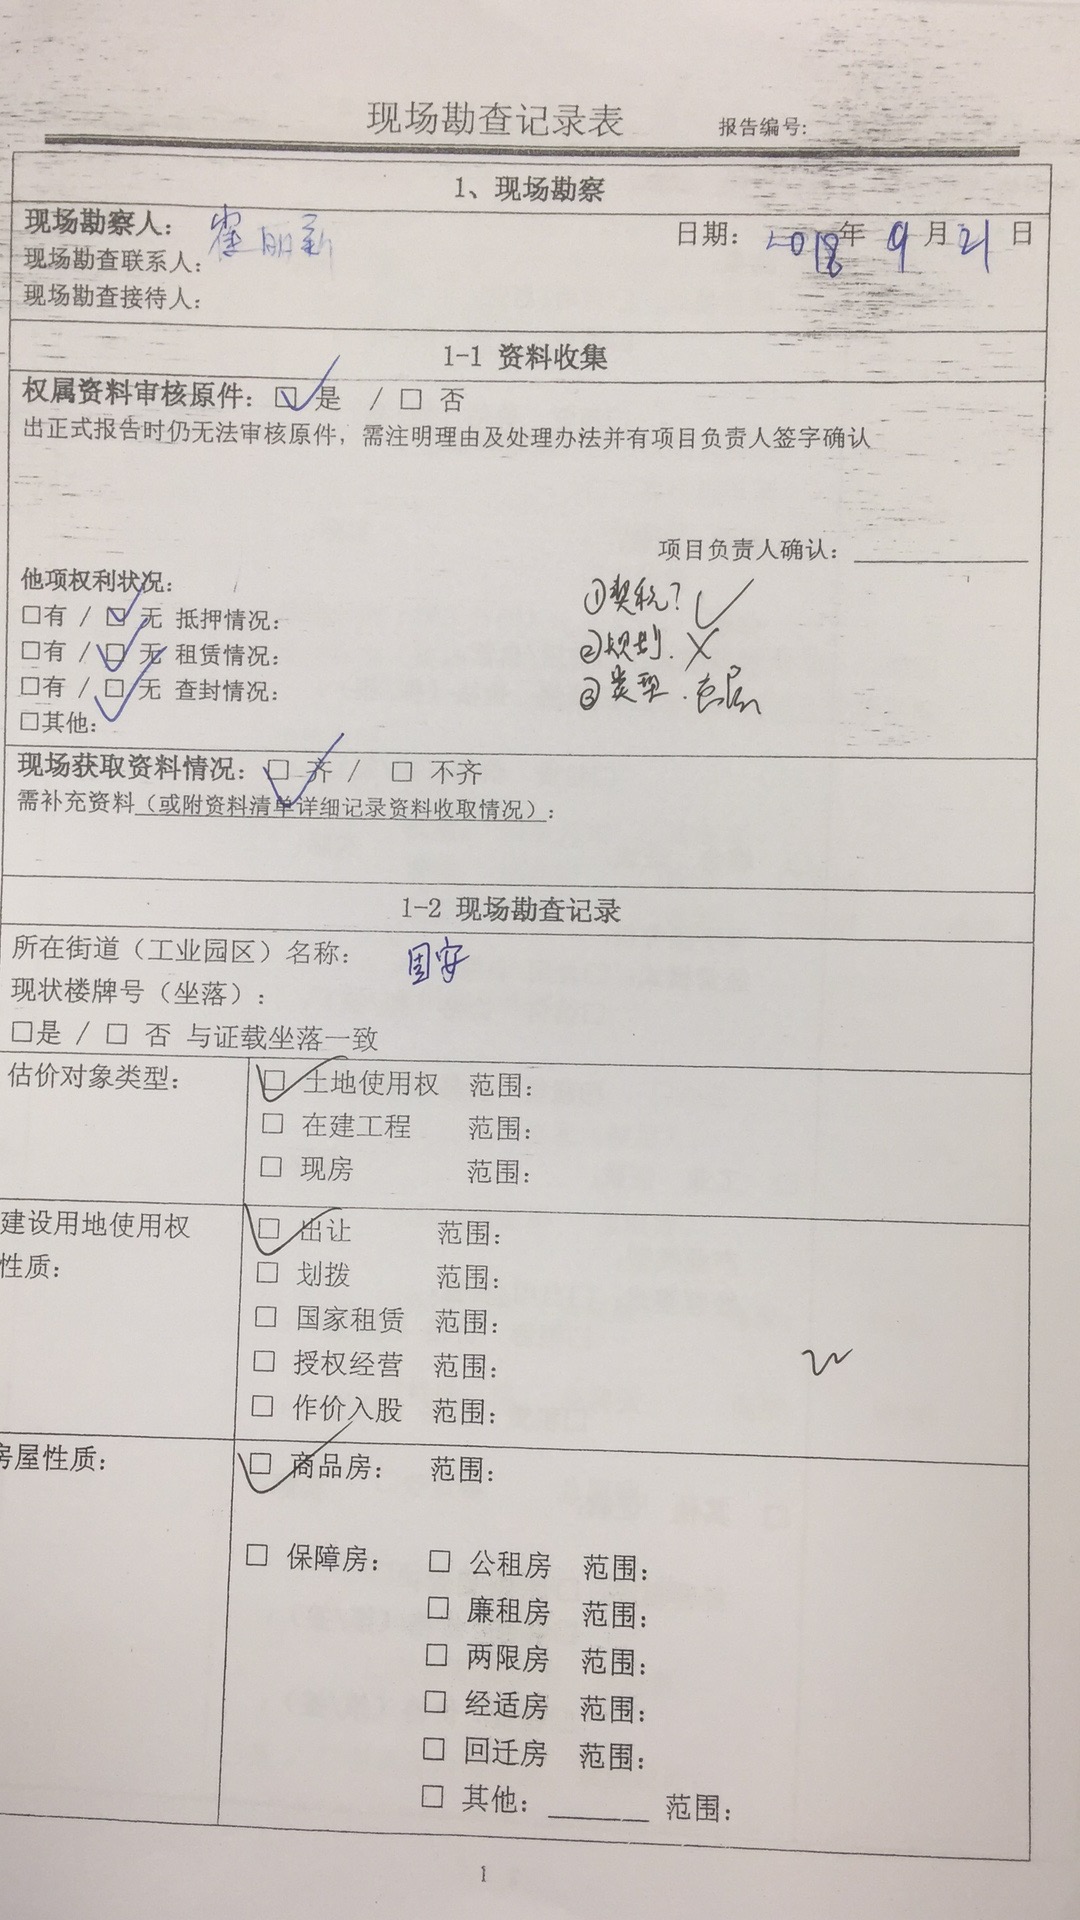 现场勘查记录表 报告编号:
1、现场勘察
现场勘察人: 霍明新 日期: 2018年 9月21日
现场勘查联系人:
现场勘查接待人:
1-1 资料收集
权属资料审核原件: ☑ 是 / □ 否
出正式报告时仍无法审核原件, 需注明理由及处理办法并有项目负责人签字确认
项目负责人确认: ________
他项权利状况:
①契税? ✓
□有 / ☑ 无 抵押情况:
②规划. ×
□有 / ☑ 无 租赁情况:
③类型.
□有 / ☑ 无 查封情况:
□其他:
现场获取资料情况: ☑ 齐 / □ 不齐
需补充资料(或附资料清单详细记录资料收取情况):
1-2 现场勘查记录
所在街道(工业园区)名称: 固安
现状楼牌号(坐落):
□是 / □ 否 与证载坐落一致
估价对象类型: ☑ 土地使用权 范围:
□ 在建工程 范围:
□ 现房 范围:
建设用地使用权 ☑ 出让 范围:
性质: □ 划拨 范围:
□ 国家租赁 范围:
□ 授权经营 范围:
□ 作价入股 范围:
房屋性质: ☑ 商品房: 范围:
□ 保障房: □ 公租房 范围:
□ 廉租房 范围:
□ 两限房 范围:
□ 经适房 范围:
□ 回迁房 范围:
□ 其他: ______ 范围:
1